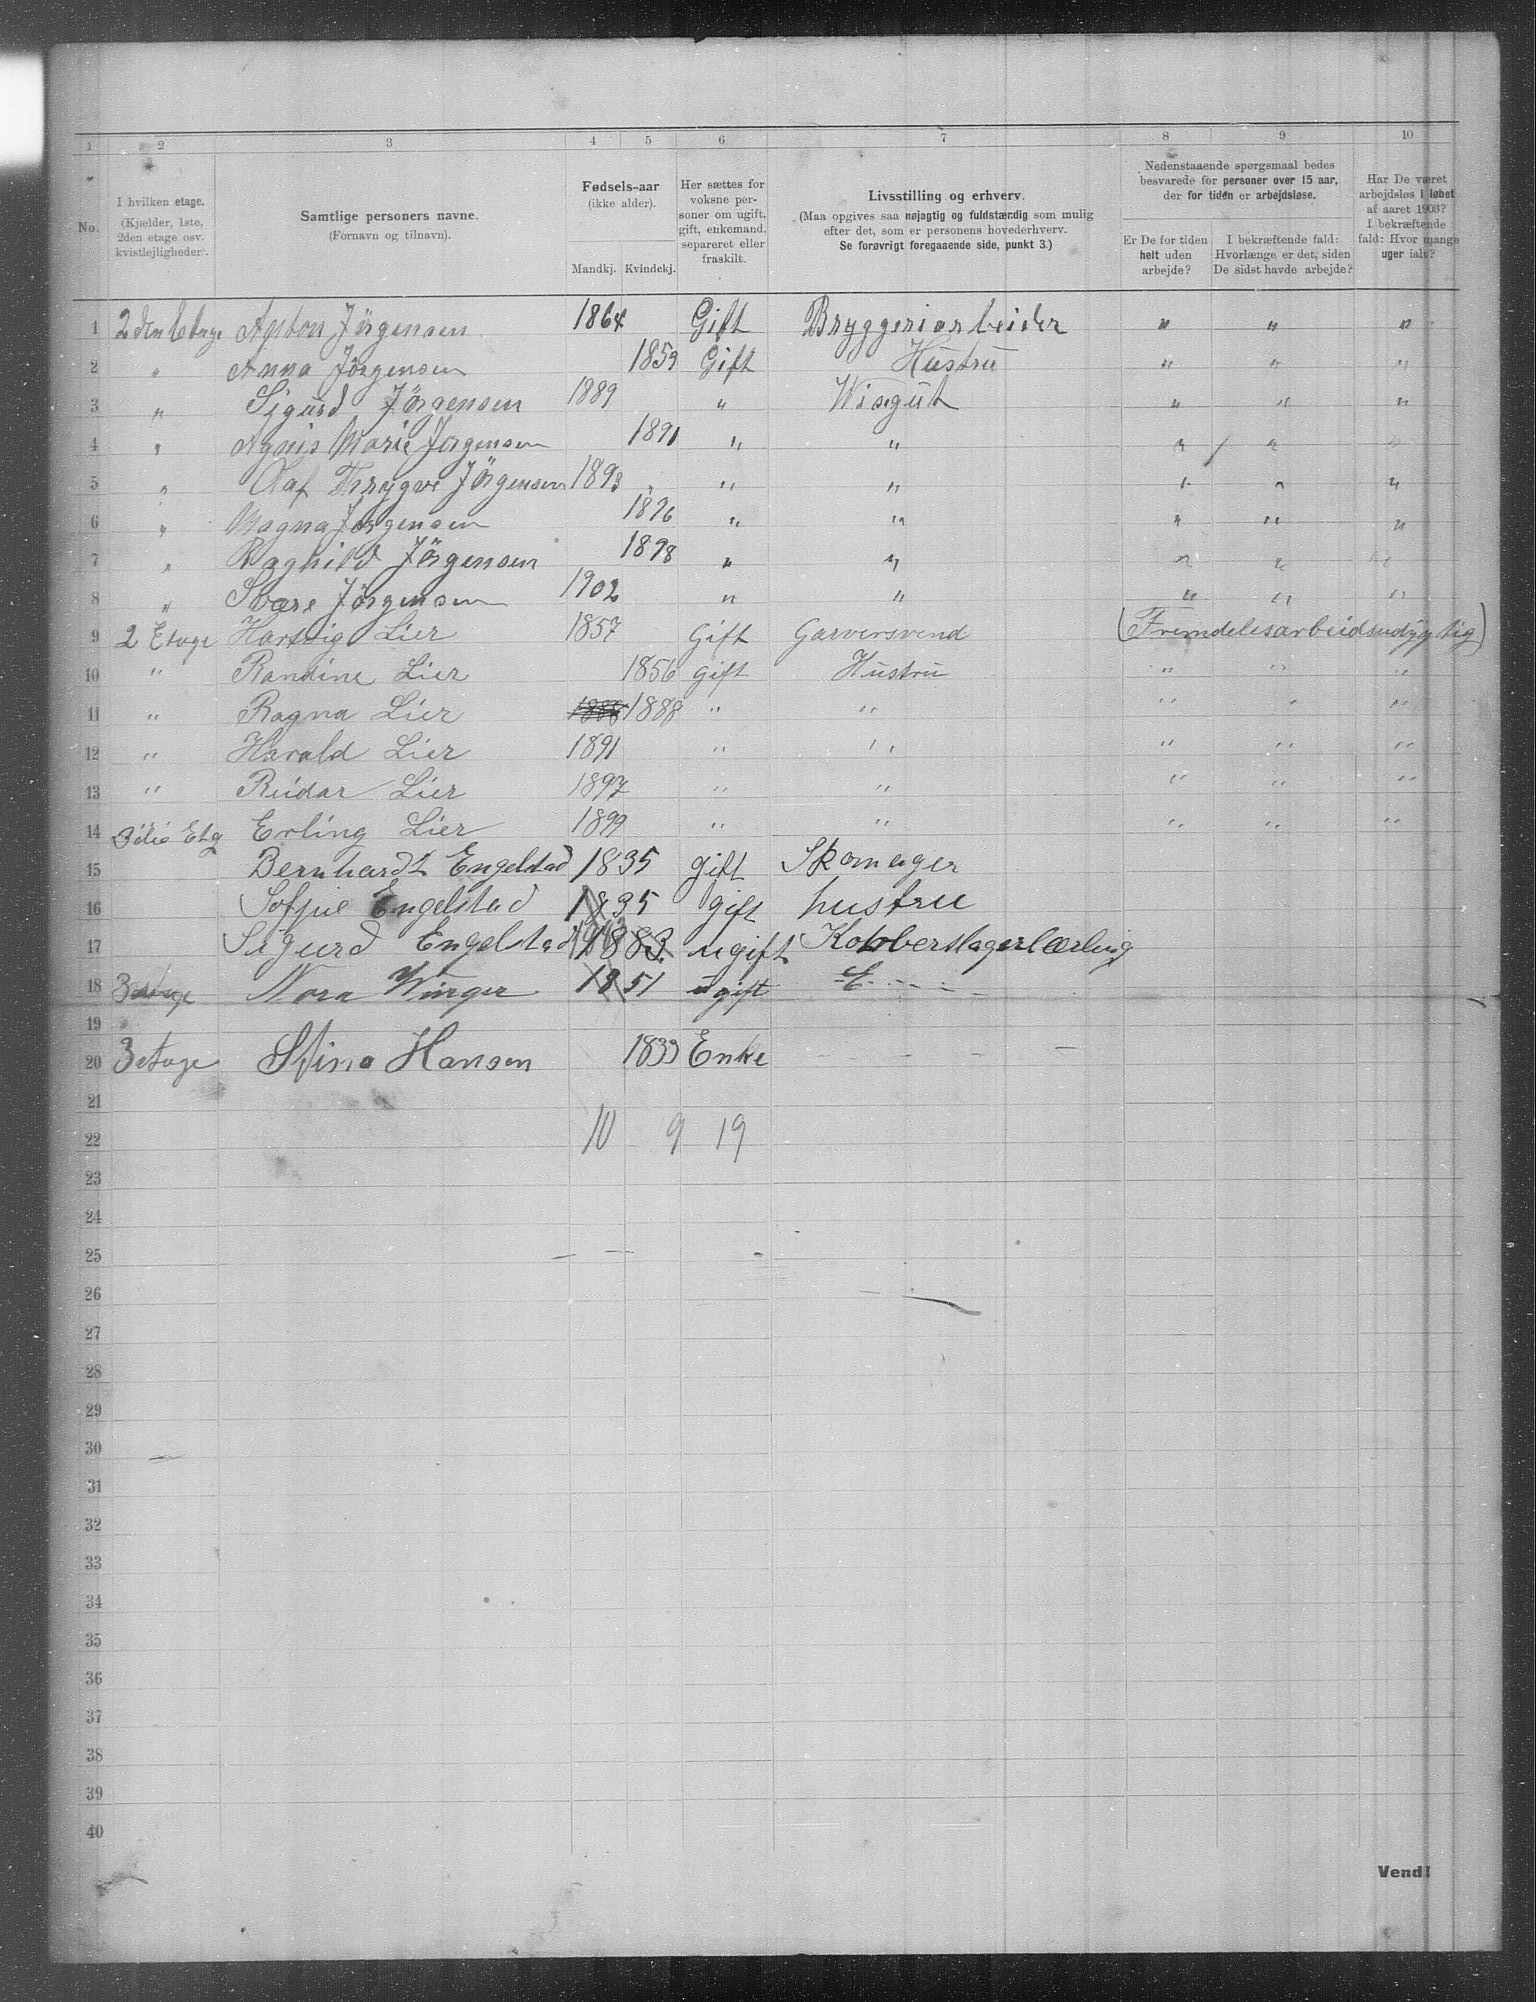 1 2 3 4 5 6 7 8 9 10
No.
I hvilken etage.
(Kjælder, 1ste,
2den etage osv.
kvistlejligheder).
Samtlige personers navne.
(Fornavn og tilnavn).
Fødsels-aar
(ikke alder).
Mandkj. Kvindekj.
Her sættes for
voksne per-
soner om ugift,
gift, enkemand,
separeret eller
fraskilt.
Livsstilling og erhverv.
(Maa opgives saa nøjagtig og fuldstændig som mulig
efter det, som er personens hovederhverv.
Se forøvrigt foregaaende side, punkt 3.)
Nedenstaaende spørgsmaal bedes
besvarede for personer over 15 aar,
der for tiden er arbejdsløse.
Er De for tiden
helt uden
arbejde?
I bekræftende fald:
Hvorlænge er det, siden
De sidst havde arbejde?
Har De været
arbejdsløs i løbet
af aaret 1903?
I bekræftende
fald: Hvor mange
uger ialt?
1 2den Etage Anton Jörgensen 1864 Gift Bryggeriarbeider " " "
2 " Anna Jörgensen 1859 Gift Hustru " " "
3 " Sigurd Jörgensen 1889 " Wisegut " " "
4 " Agnis Marie Jörgensen 1891 " " " " "
5 " Olaf Thrygve Jörgensen 1893 " " " " " "
6 " Magna Jörgensen 1896 " " " " "
7 " Raghild Jörgensen 1898 " " " " "
8 " Svare Jörgensen 1902 " " " " "
9 2 Etage Hartvig Lier 1857 Gift Garversvend (Fremdeles arbeidsudygtig)
10 " Randine Lier 1856 gift Hustru " " "
11 " Ragna Lier 1888 1888 " " " " "
12 " Harald Lier 1891 " " " " "
13 " Reidar Lier 1897 " " " " "
14 Etg Erling Lier 1899 " " " " "
15 Bernhardt Engelstad 1835 gift Skomager
16 Sofie Engelstad 1835 gift hustru
17 Sigurd Engelstad 1883 ugift Kobberslagerlærling
18 3 etage Nora Winger 1851 ugift
19
20 3 etage Stina Hansen 1833 Enke — — — —
21
22 10 9 19
23
24
25
26
27
28
29
30
31
32
33
34
35
36
37
38
39
40
Vend!